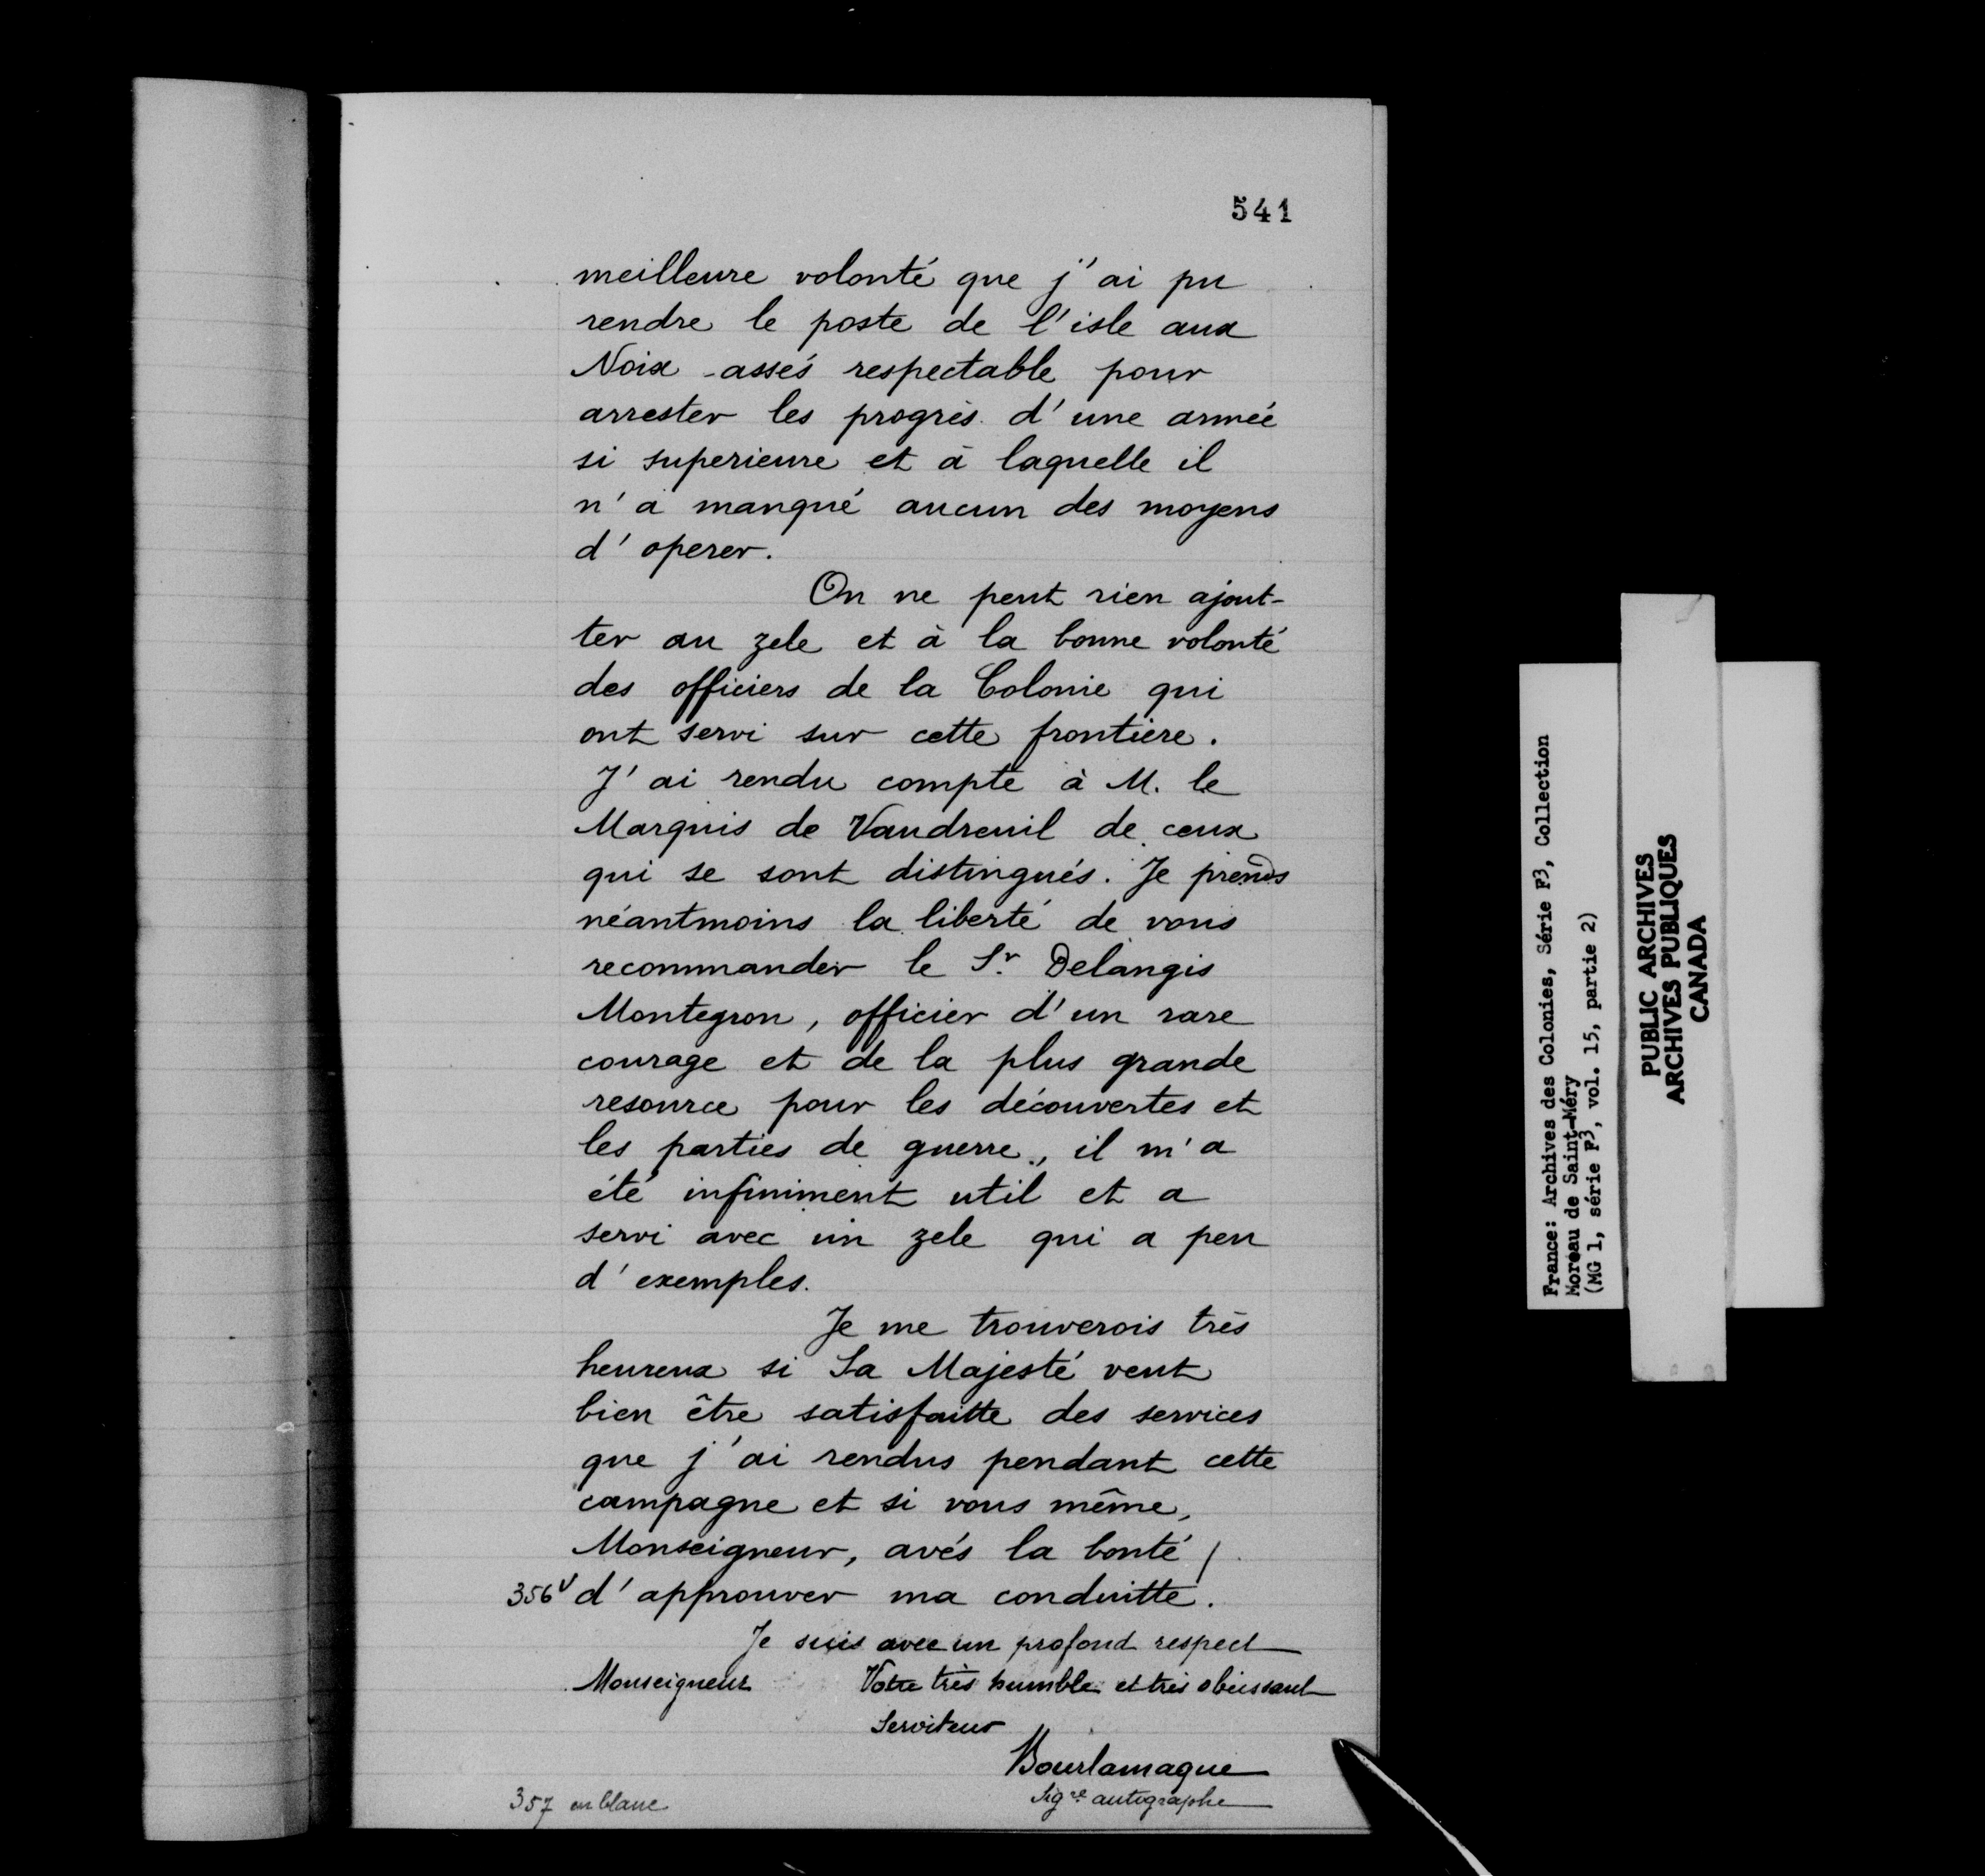 541
meilleure volonté que j'ai pu
rendre le poste de l'isle aux
Noix assés respectable pour
arrester les progrès d'une armée
si superieure et à laquelle il
n'a manqué aucun des moyens
d'operer.
On ne peut rien ajout-
ter au zele et à la bonne volonté
des officiers de la Colonie qui
ont servi sur cette frontiere.
J'ai rendu compte à M. le
Marquis de Vaudreuil de ceux
qui se sont distingués. Je prends
néantmoins la liberté de vous
recommander le Sr. Delangis
Montegron, officier d'un rare
courage et de la plus grande
resource pour les découvertes et
les parties de guerre, il m'a
été infiniment util et a
servi avec un zele qui a peu
d'exemples.
Je me trouverois très
heureux si Sa Majesté veut
bien être satisfaitte des services
que j'ai rendus pendant cette
campagne et si vous même,
Monseigneur, avés la bonté /
356v d'approuver ma conduitte.
Je suis avec un profond respect
Monseigneur Votre très humble et très obeissant
Serviteur
Bourlamaque
Sigre autographe
357 en blanc
France: Archives des Colonies, Série F3, Collection
Moreau de Saint-Méry
(MG 1, série F3, vol. 15, partie 2)
PUBLIC ARCHIVES
ARCHIVES PUBLIQUES
CANADA